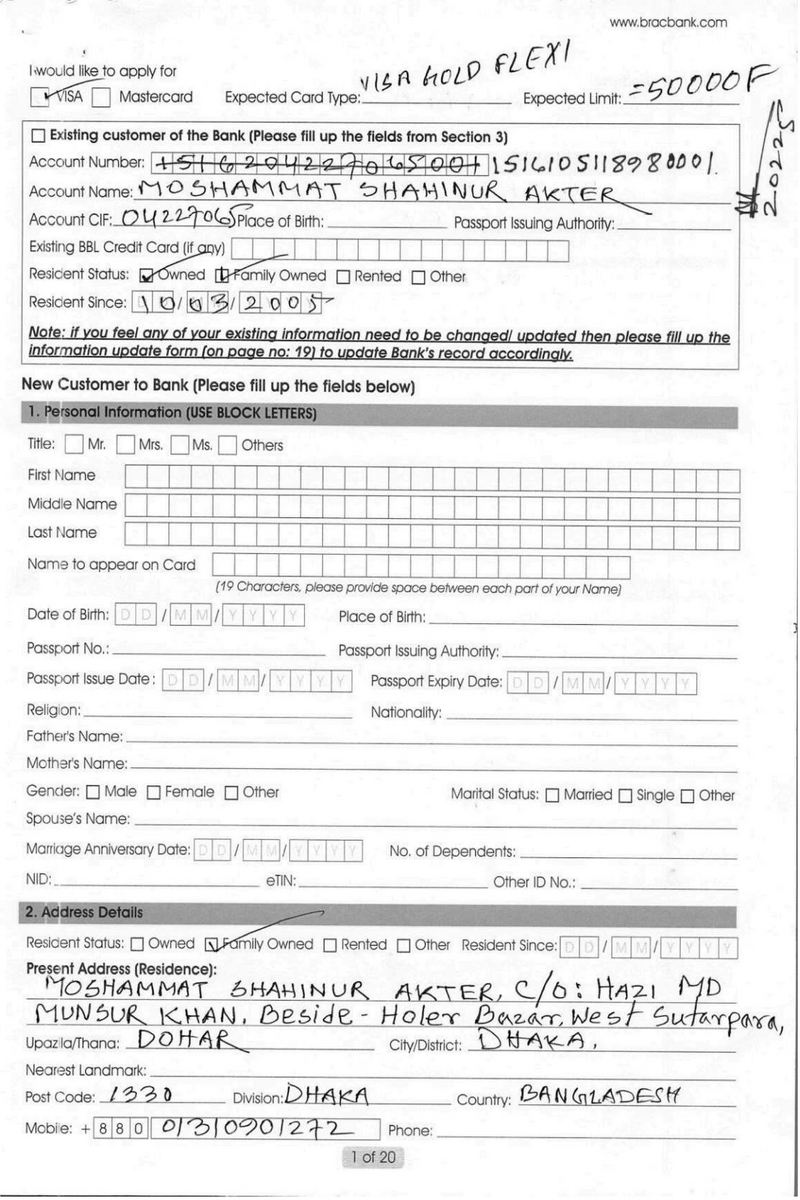 www.bracbank.com
I would like to apply for
VISA Mastercard Expected Card Type: VISA GOLD FLEXI Expected Limit: =50000F
20225
Existing customer of the Bank (Please fill up the fields from Section 3)
Account Number: 1516204227065001 1516105118980001.
Account Name: MOSHAMMAT SHAHINUR AKTER
Account CIF: 04227065 Place of Birth: Passport Issuing Authority:
Existing BBL Credit Card (if any)
Resident Status: Owned Family Owned Rented Other
Resident Since: 10/03/2005
Note: if you feel any of your existing information need to be changed/ updated then please fill up the
information update form (on page no: 19) to update Bank's record accordingly.
New Customer to Bank (Please fill up the fields below)
1. Personal Information (USE BLOCK LETTERS)
Title: Mr. Mrs. Ms. Others
First Name
Middle Name
Last Name
Name to appear on Card
(19 Characters, please provide space between each part of your Name)
Date of Birth: DD/MM/YYYY Place of Birth:
Passport No.: Passport Issuing Authority:
Passport Issue Date: DD/MM/YYYY Passport Expiry Date: DD/MM/YYYY
Religion: Nationality:
Father's Name:
Mother's Name:
Gender: Male Female Other Marital Status: Married Single Other
Spouse's Name:
Marriage Anniversary Date: DD/MM/YYYY No. of Dependents:
NID: eTIN: Other ID No.:
2. Address Details
Resident Status: Owned Family Owned Rented Other Resident Since: DD/MM/YYYY
Present Address (Residence):
MOSHAMMAT SHAHINUR AKTER, C/O: HAZI MD
MUNSUR KHAN, Beside - Holer Bazar, West Sutarpara,
Upazila/Thana: DOHAR City/District: DHAKA,
Nearest Landmark:
Post Code: 1330 Division: DHAKA Country: BANGLADESH
Mobile: +880 01310901272 Phone:
1 of 20